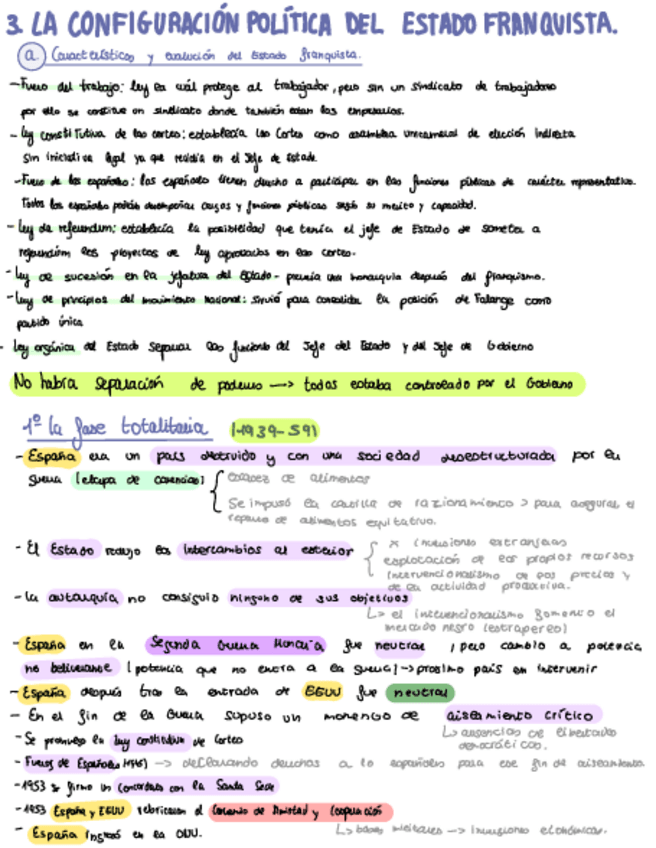 3. LA CONFIGURACIÓN POLÍTICA DEL ESTADO FRANQUISTA.
a. Características y evolución del Estado franquista.
- Fuero del trabajo: ley en cuál protege al trabajador, pero sin un sindicato de trabajadores
por ello se constituye un sindicato donde también estan los empresarios.
- Ley constitutiva de las cortes: establecía las Cortes como asamblea unicameral de elección indirecta
sin iniciativa legal ya que residía en el Jefe de Estado.
- Fuero de los españoles: los españoles tienen derecho a participar en las funciones públicas de carácter representativo.
Todos los españoles podrán desempeñar cargos y funciones públicas según su merito y capacidad.
- Ley de referendum: establecía la posibilidad que tenía el jefe de Estado de someter a
referendum los proyectos de ley aprobados en las cortes.
- Ley de sucesión en la jefatura del Estado - preveía una monarquía después del franquismo.
- Ley de principios del movimiento nacional: sirvió para consolidar la posición de Falange como
partido único
- Ley orgánica del Estado separar las funciones del Jefe del Estado y del Jefe de Gobierno
No habría separación de poderes —> todos estaba controlado por el Gobierno
1º la fase totalitaria (1939-59)
- España era un país destruido y con una sociedad desestructurada por la
guerra (etapa de carencias)
Escasez de alimentos
Se impuso la cartilla de racionamiento > para asegurar el
reparto de alimentos equitativo.
- El Estado redujo los intercambios al exterior
x inversiones extranjeras
explotación de los propios recursos
intervencionalismo de los precios y
de la actividad productiva.
- La autarquía no consiguió ninguno de sus objetivos
L> el intervencionalismo fomento el
mercado negro (estraperlo)
- España en la Segunda Guerra Mundial fue neutral, pero cambio a potencia
no beligerante (potencia que no entra a la guerra) -> proximo país en intervenir
- España después tras la entrada de EEUU fue neutral
- En el fin de la Guerra supuso un momento de aislamiento crítico
L> ausencias de libertades
democráticas.
- Se promueve la ley constitutiva de Cortes
- Fueros de Españoles (1945) —> declarando derechos a los españoles para ese fin de aislamiento.
- 1953 se firmo un Concordato con la Santa Sede
- 1953 España y EEUU rubricaron el Convenio de Amistad y Cooperación
L> bases militares —> inversiones económicas.
- España ingresó en la ONU.